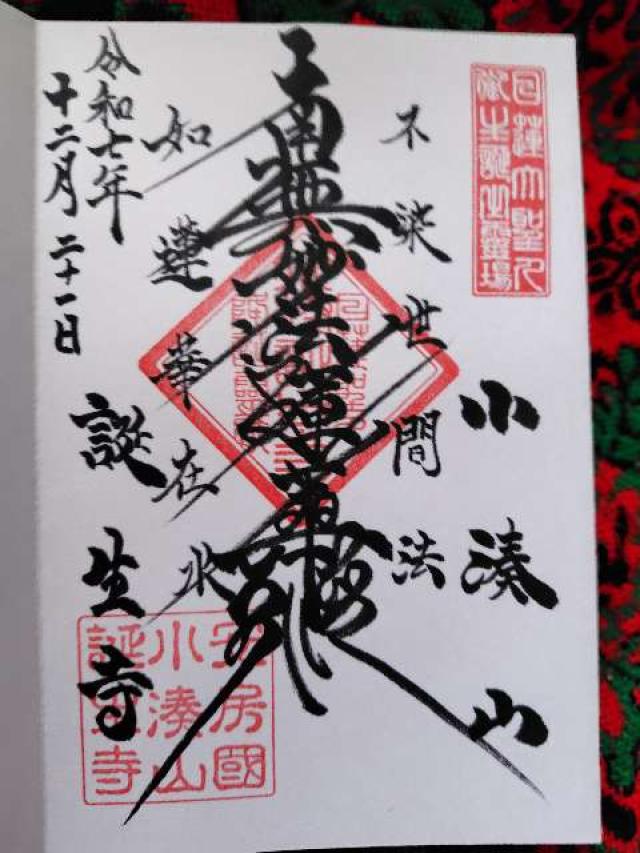 日蓮大聖人
御生誕生霊場
小湊山
不染世間法
南無妙法蓮華経
如蓮華在水
誕生寺
令和七年
十二月二十一日
安房國
小湊山
誕生寺